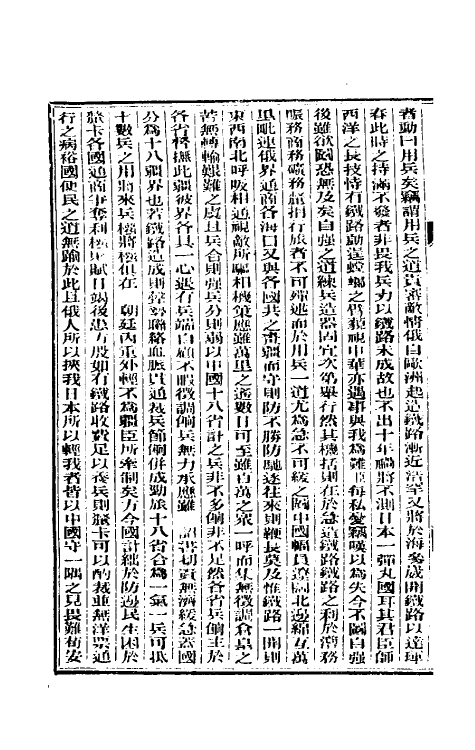 者動曰用兵矣竊謂用兵之道貴審敵情俄自歐洲起造鐵路漸近浩罕又將於海參崴開鐵路以達琿
春此時之持滿不發者非畏我兵力以鐵路未成故也不出十年禍將不測日本一彈丸國耳其君臣師
西洋之長技恃有鐵路動逞螳螂之臂藐視中華亦遇事與我為難臣每私憂竊嘆以為失今不圖自強
後雖欲圖恐無及矣自強之道練兵造器固宜次第舉行然其機括則在於急造鐵路鐵路之利於漕務
賑務商務礦務釐捐行旅者不可殫述而於用兵一道尤為急不可緩之圖中國幅員遼闊北邊綿亙萬
里毗連俄界通商各海口又與各國共之畫疆而守則防不勝防馳逐往來則鞭長莫及惟鐵路一開則
東西南北呼吸相通視敵所驅相機策應雖萬里之遙數日可至雖百萬之眾一呼而集無徵調倉皇之
苦無轉輸艱難之虞且兵合則強兵分則弱以中國十八省計之兵非不多餉非不足然各省兵餉主於
各省督撫此疆彼界各具一心遇有兵端自顧不暇徵調餉兵無力承應雖 詔書切責無濟緩急蓋國
分為十八疆界也若鐵路造成則聲勢聯絡血脈貫通裁兵節餉併成勁旅十八省合為一氣一兵可抵
十數兵之用將來兵權將權俱在 朝廷內重外輕不為疆臣所牽制矣方今國計絀於防邊民生困於
釐卡各國通商爭奪利權財賦日竭後患方殷如有鐵路收費足以養兵則釐卡可以酌裁並無洋票通
行之病裕國便民之道無踰於此且俄人所以挾我日本所以輕我者皆以中國守一隅之見畏難苟安